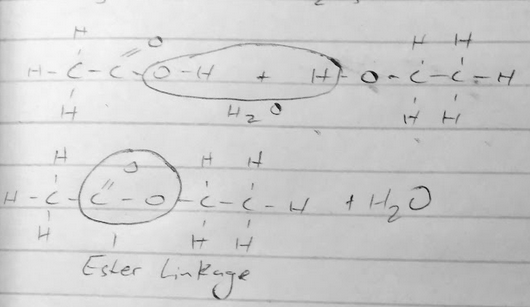 H O H H
H - C - C - O - H + H - O - C - C - H
H H H
H₂O
H O H H
H - C - C - O - C - C - H + H₂O
H H H
Ester Linkage